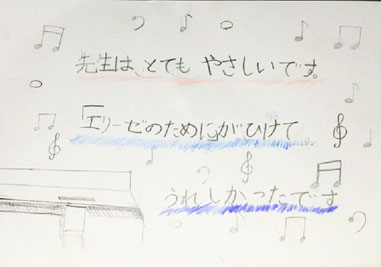 先生は、とても やさしいです。
「エリーゼのために」がひけて
うれしかったです